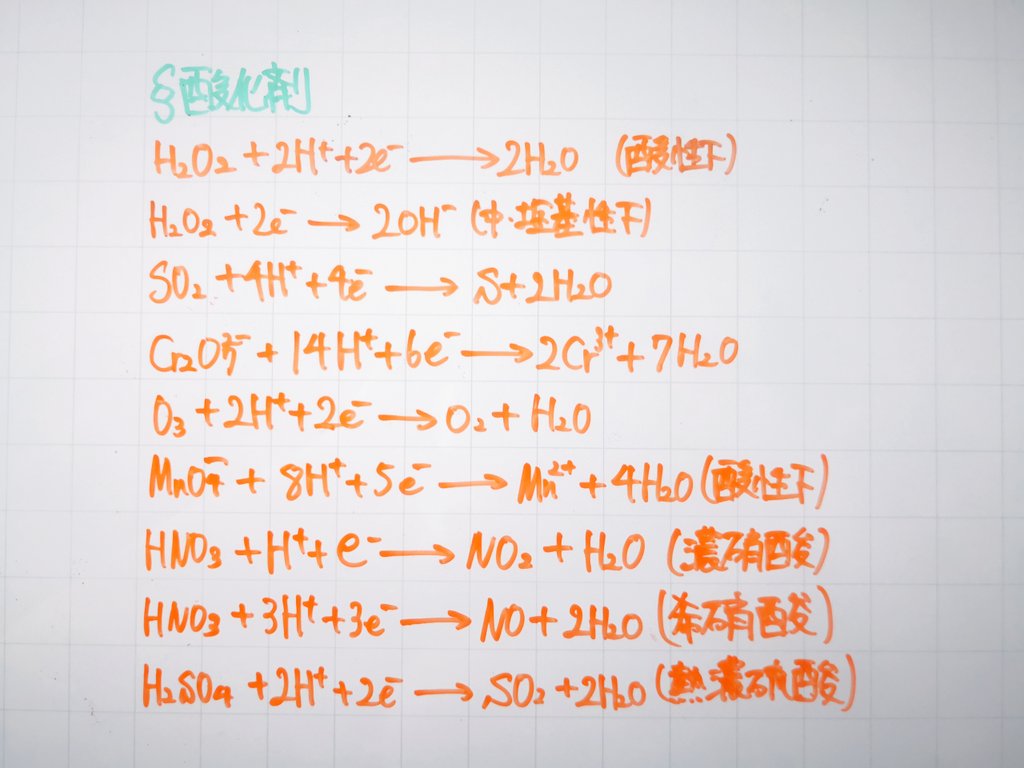 §酸化剤
H₂O₂ + 2H⁺ + 2e⁻ → 2H₂O (酸性下)
H₂O₂ + 2e⁻ → 2OH⁻ (中・塩基性下)
SO₂ + 4H⁺ + 4e⁻ → S + 2H₂O
Cr₂O₇²⁻ + 14H⁺ + 6e⁻ → 2Cr³⁺ + 7H₂O
O₃ + 2H⁺ + 2e⁻ → O₂ + H₂O
MnO₄⁻ + 8H⁺ + 5e⁻ → Mn²⁺ + 4H₂O (酸性下)
HNO₃ + H⁺ + e⁻ → NO₂ + H₂O (濃硝酸)
HNO₃ + 3H⁺ + 3e⁻ → NO + 2H₂O (希硝酸)
H₂SO₄ + 2H⁺ + 2e⁻ → SO₂ + 2H₂O (熱濃硫酸)